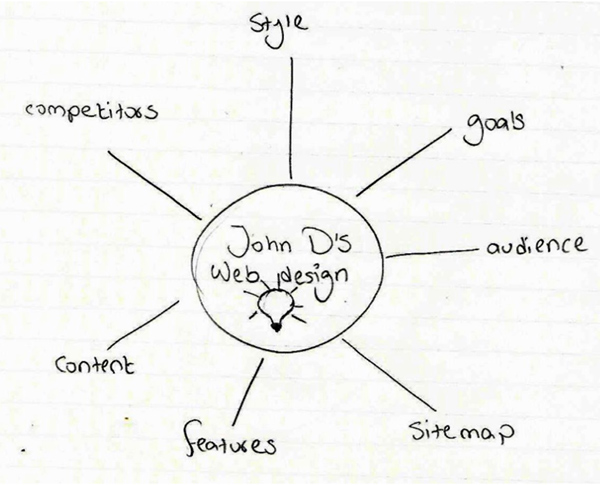 Style
competitors
goals
John D's
Web design
audience
Content
features
Sitemap